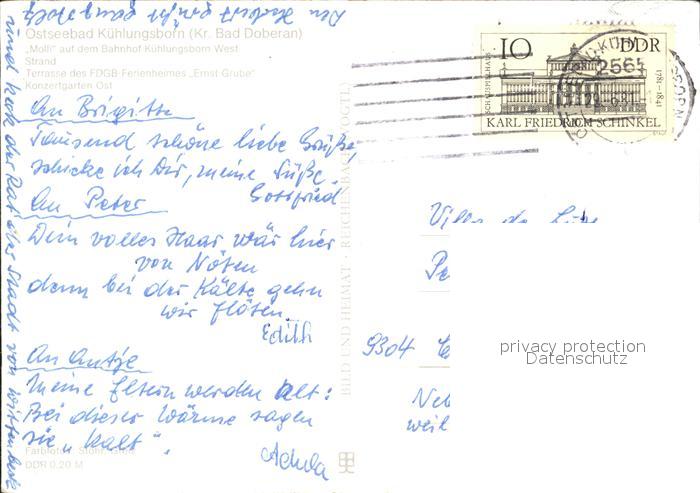 Ostseebad Kühlungsborn (Kr. Bad Doberan)
„Molli" auf dem Bahnhof Kühlungsborn West
Strand
Terrasse des FDGB-Ferienheimes „Ernst Grube"
Konzertgarten Ost
An Brigitte
Tausend schöne liebe Grüße
schicke ich Dir, meine Süße.
Gottfried
An Peter
Dein volles Haar wär hier
von Nöten
denn bei der Kälte gehn
wir flöten
Edith
An Antje
Meine Eltern werden alt:
Bei dieser Wärme sagen
sie „kalt".
DDR 0,20 M
BILD UND HEIMAT · REICHENBACH (VOGTL)
10 DDR
SCHAUSPIELHAUS
1781–1841
KARL FRIEDRICH SCHINKEL
2565
9304
weil
privacy protection
Datenschutz